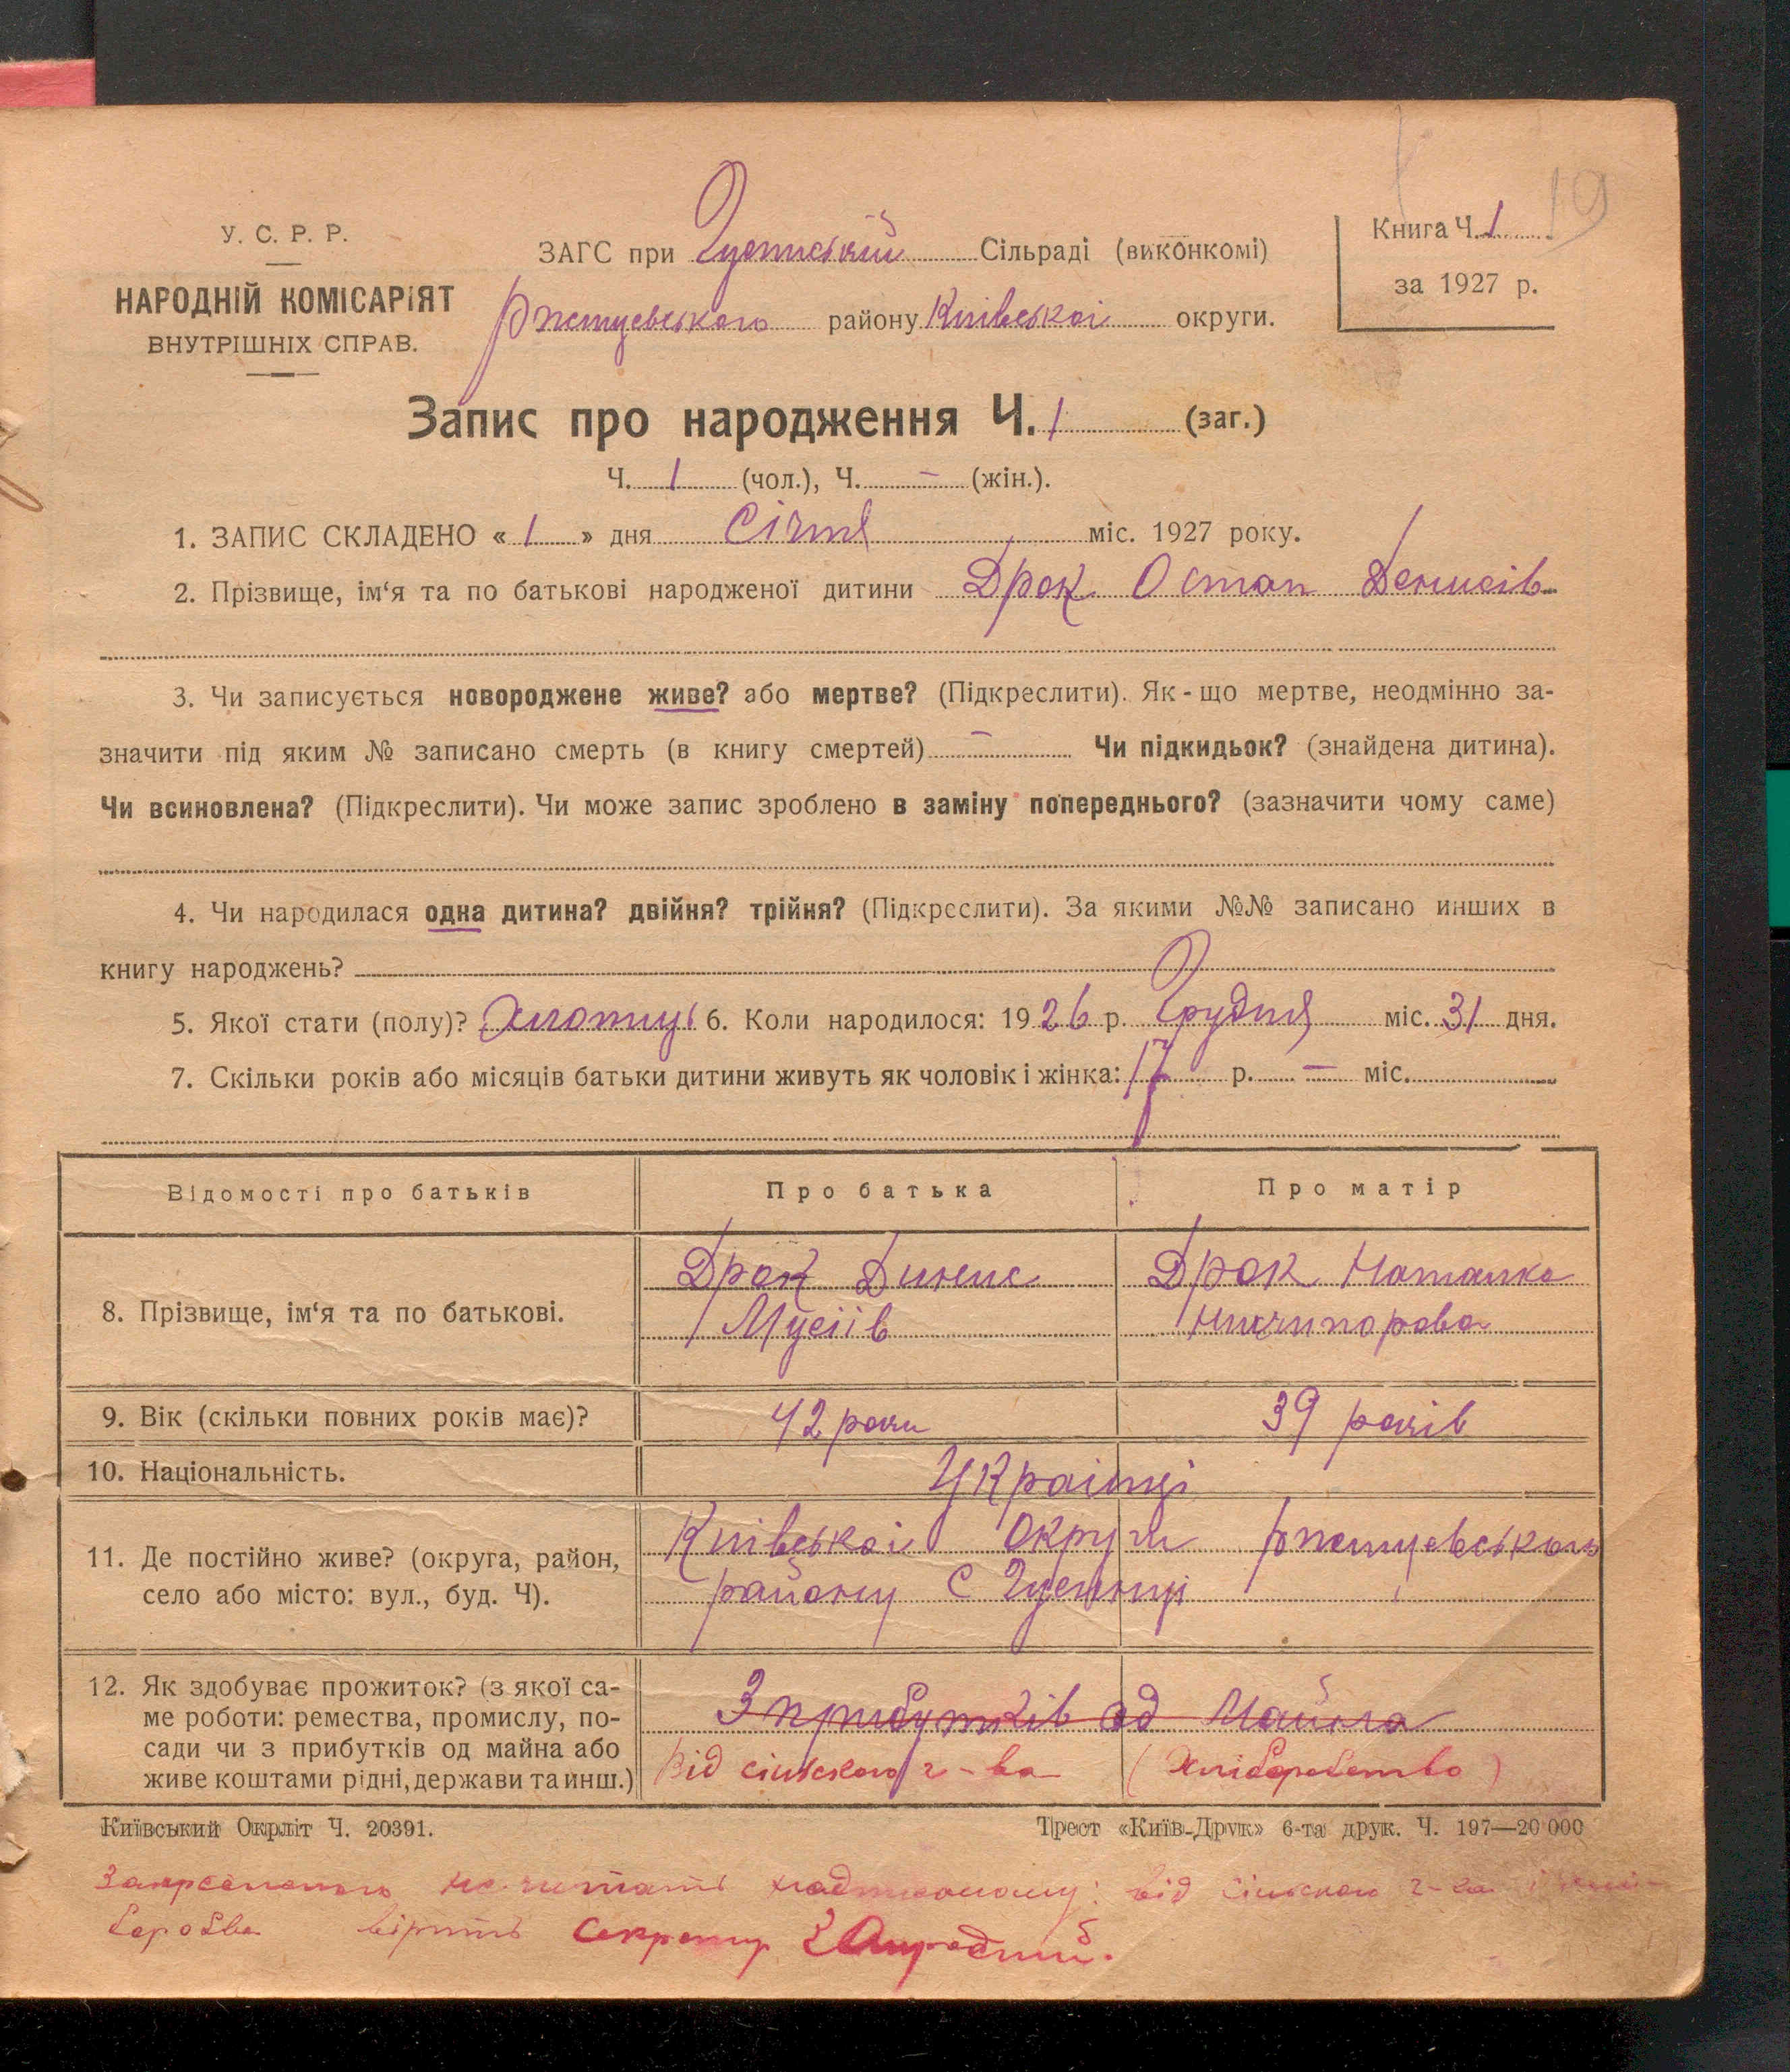 19
У. С. Р. Р.
НАРОДНІЙ КОМІСАРІЯТ
ВНУТРІШНІХ СПРАВ.
ЗАГС при Сільраді (виконкомі)
Ржищевського району Київської округи.
Книга Ч. 1
за 1927 р.
Запис про народження Ч. 1 (заг.)
Ч. 1 (чол.), Ч. — (жін.).
1. ЗАПИС СКЛАДЕНО « 1 » дня Січня міс. 1927 року.
2. Прізвище, ім‘я та по батькові народженої дитини Дрок Остап Денисів
3. Чи записується новороджене живе? або мертве? (Підкреслити). Як-що мертве, неодмінно за-
значити під яким № записано смерть (в книгу смертей) — Чи підкидьок? (знайдена дитина).
Чи всиновлена? (Підкреслити). Чи може запис зроблено в заміну попереднього? (зазначити чому саме)
4. Чи народилася одна дитина? двійня? трійня? (Підкреслити). За якими №№ записано инших в
книгу народжень?
5. Якої стати (полу)? 6. Коли народилося: 1926 р. Грудня міс. 31 дня.
7. Скільки років або місяців батьки дитини живуть як чоловік і жінка: 17 р. — міс.
Відомості про батьків
Про батька
Про матір
8. Прізвище, ім‘я та по батькові.
Дрок Динис
Мусіїв
Дрок Наталка
Ничипорова
9. Вік (скільки повних років має)?
42 роки
39 років
10. Національність.
Українці
11. Де постійно живе? (округа, район,
село або місто: вул., буд. Ч).
Київської Округи Ржищевського
району с
12. Як здобуває прожиток? (з якої са-
ме роботи: ремества, промислу, по-
сади чи з прибутків од майна або
живе коштами рідні, держави та инш.)
З прибутків од Майна
Від сільського г-ва (Хліборобство)
Київський Окрліт Ч. 20391.
Трест «Київ-Друк» 6-та друк. Ч. 197—20 000
Закресленого не читать надписаному: від сільского г-ва і хлі-
боробва вірить Секретар